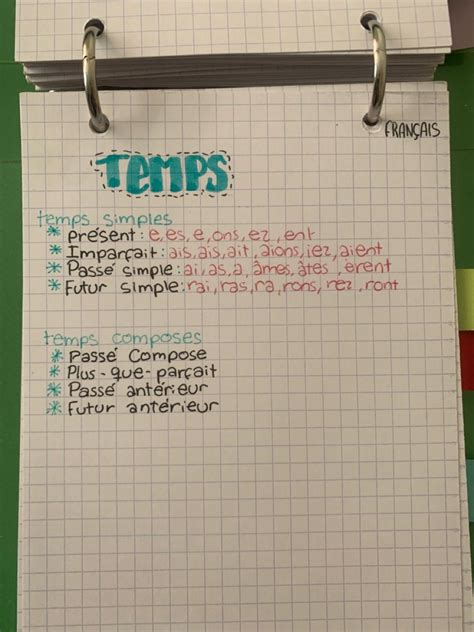 FRANÇAIS
TEMPS
temps simples
* présent : e, es, e, ons, ez, ent
* Imparçait : ais, ais, ait, aions, iez, aient
* Passé simple : ai, as, a, âmes, âtes, erent
* Futur simple : rai, ras, ra, rons, rez, ront
temps composes
* Passé Compose
* Plus-que-parçait
* Passé antérieur
* Futur antérieur